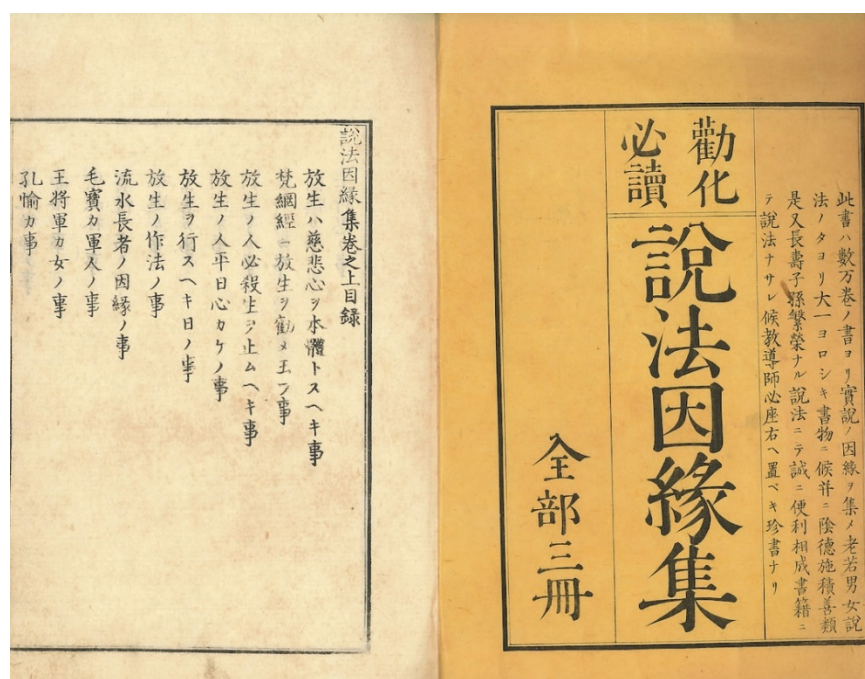 此書ハ數万巻ノ書ヨリ實説ノ因縁ヲ集メ老若男女説
法ノタヨリ大一ヨロシキ書物ニ候并ニ陰德施積善類
是又長壽子孫繁榮ナル説法ニテ誠ニ便利相成書籍ニ
テ説法ナサレ候教導師必座右ヘ置ベキ珍書ナリ
勸化
必讀
說法因緣集
全部三冊
說法因緣集卷之上目録
放生ハ慈悲心ヲ本體トスヘキ事
梵網經ニ放生ヲ勧メ玉フ事
放生ノ人必殺生ヲ止ムヘキ事
放生ノ人平日心カケノ事
放生ヲ行スヘキ日ノ事
放生ノ作法ノ事
流水長者ノ因縁ノ事
毛寶カ軍人ノ事
王将軍カ女ノ事
孔愉カ事